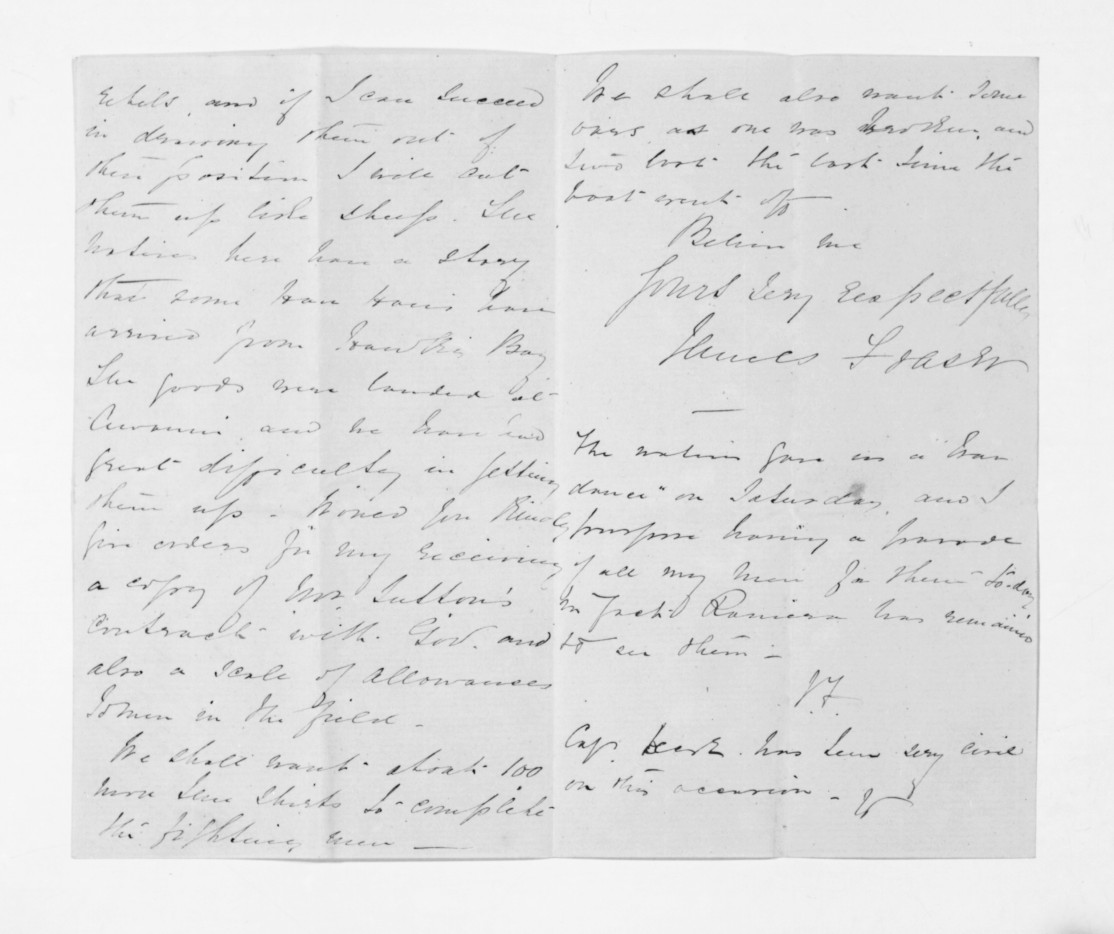 rebels and if I can succeed
in drawing them out of
their position I will cut
them up like sheep. The
Natives here have a story
that some Hau Haus have
arrived from Hawkes Bay
The goods were landed at
Awanui and we have had
great difficulty in getting
them up - Would you kindly
give orders for my receiving
a copy of Mr Sutton's
contract with Gov. and
also a scale of allowances
to men in the field -
We shall want about 100
more blue shirts to complete
the fighting men —
We shall also want some
oars as one was broken and
two lost the last time the
boat went off
Believe me
Yours very respectfully
James Fraser
—
The natives gave us a "war
dance" on Saturday, and I
purpose having a parade
of all my men for them to-day
Raniera has remained
to see them -
J.F.
Cap. has been very civil
on this occasion - JF